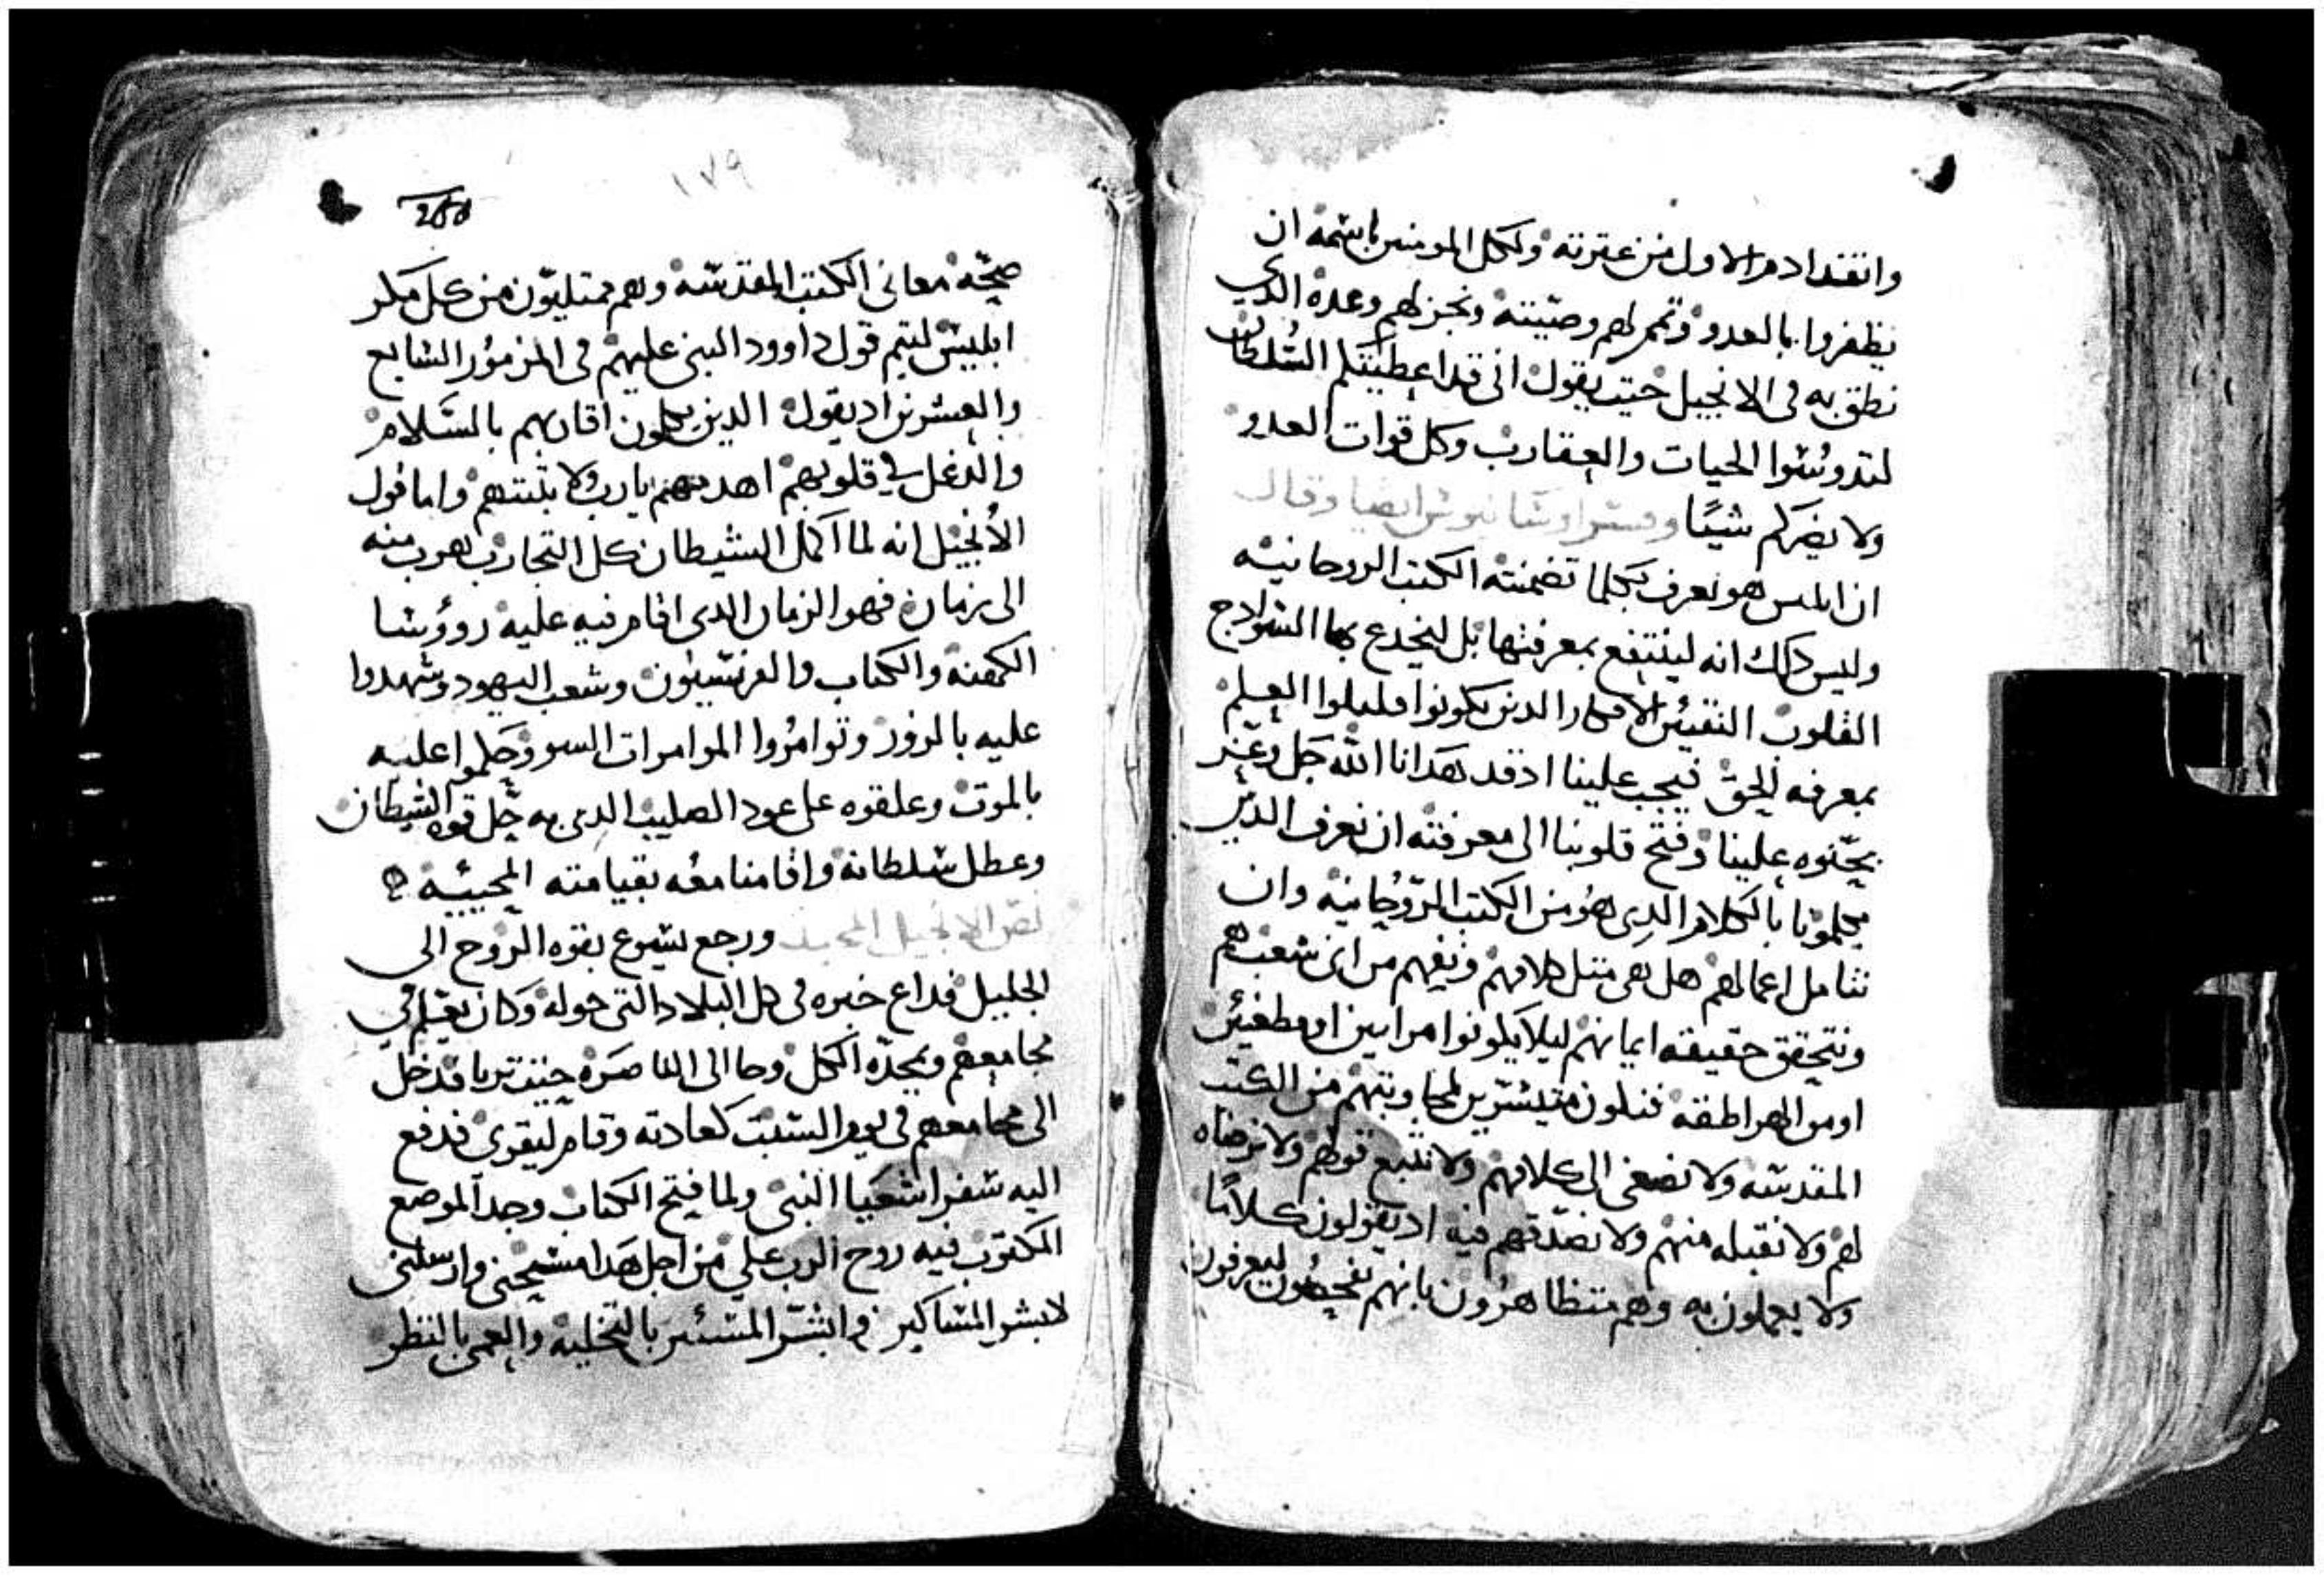 وانقذ ادم الاول من عترته ولكل المومنين باسمه ان
يظفروا بالعدو وتمم لهم وصيته ونجز لهم وعده الدي
نطق به في الانجيل حيت يقول اني قد اعطيتكم السلطان
لتدوسوا الحيات والعقارب وكل قوات العدو
ولا يضركم شيًا وفسر اوسانيوس ايضا وقال
ان ابليس هو يعرف بكلما تضمنته الكتب الروحانيه
وليس دلك انه لينتفع بمعرفتها بل ليخدع بها السوادج
القلوب النقيين الافكار الدين يكونوا قليلوا العلم
بمعرفه الحق فيجب علينا اد قد هدانا الله جل وعز
بحنوه علينا وفتح قلوبنا الى معرفته ان نعرف الدين
يكلمونا بالكلام الدي هو من الكتب الروحانيه وان
نتامل اعمالهم هل هي متل كلامهم ونفهم من اي شعب هم
ونتحقق حقيقه ايمانهم ليلا يكونوا مرايين او مطغيين
او من الهراطقه فنكون متيسرين لمجاوبتهم من الكتب
المقدسه ولا نصغى الى كلامهم ولا نتبع قولهم ولا نرضاه
لهم ولا نقبله منهم ولا نصدقهم فيه اد يقولون كلامًا
ولا يعملون به وهم متظاهرون بانهم يفحصون ليعرفون
200
١٧٩
صحه معاني الكتب المقدسه وهم ممتليون من كل مكر
ابليس ليتم قول داوود النبي عليهم في المزمور السابع
والعشرين اد يقول الدين يكلمون اقاربهم بالسلام
والدغل في قلوبهم اهدمهم يارب ولا تبنيهم واما قول
الانجيل انه لما اكمل الشيطان كل التجارب هرب منه
الى زمان فهو الزمان الدي اقام فيه عليه روؤسا
الكهنه والكتاب والفريسيون وشعب اليهود وشهدوا
عليه بالزور وتوامروا الموامرات السو وحكموا عليه
بالموت وعلقوه على عود الصليب الدي به حل قوه الشيطان
وعطل سلطانه واقامنا معه بقيامته المحييه
نص الانجيل المجيد ورجع يسوع بقوه الروح الى
الجليل فداع خبره في كل البلاد التي حوله وكان يعلم في
مجامعهم ويمجده الكل وجا الى الناصره حيت تربا فدخل
الى مجامعهم في يوم السبت كعادته وقام ليقرى فدفع
اليه سفر اشعيا النبي ولما فتح الكتاب وجد الموضع
المكتوب فيه روح الرب علي من اجل هدا مسحني وارسلني
لابشر المساكين وابشر المسبيين بالتخليه والعمي بالنظر